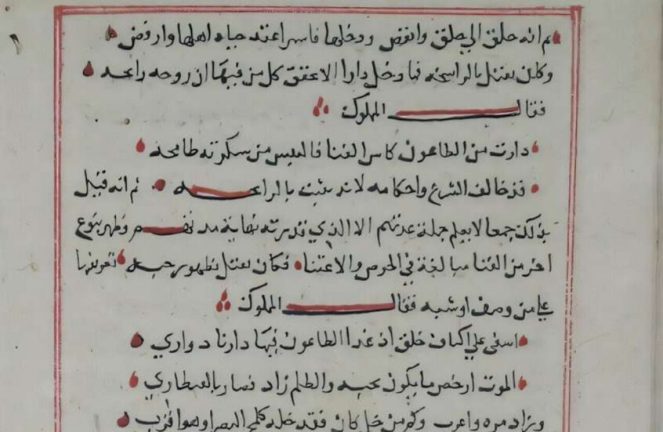 ثم انه حلق الي حلق وانغض ودخلها فاسرا عنه جباه اهلها وارفض
وكان يقتل بالرايحه فما دخل دارا الا عقق كل من فيها ان روحه رايحه
فقال المملوك
دارت من الطاعون كاس الفنا فالنفس من سكرته طافحه
قد خالف الشرع واحكامه لانه يثبت بالرايحه ثم انه قتل
بذلك جمعا لا يعلم جملة عدتهم الا الذي قدرته نهاية مد وظهر بنوع
اخر من الفنا مبالغة في الحرص والاعتنا فكان يقتل بظهور حبه
علي من وصف او شبه فقال المملوك
اسفي علي اكناف خلق اذ غدا الطاعون فيها دارنا دواري
الموت ارخص ما يكون بحبه والظلم زاد فصار بالقنطاري
وزاد مره واعرب وكم من خل كان فقد خله كلمح البصر او هو اقرب